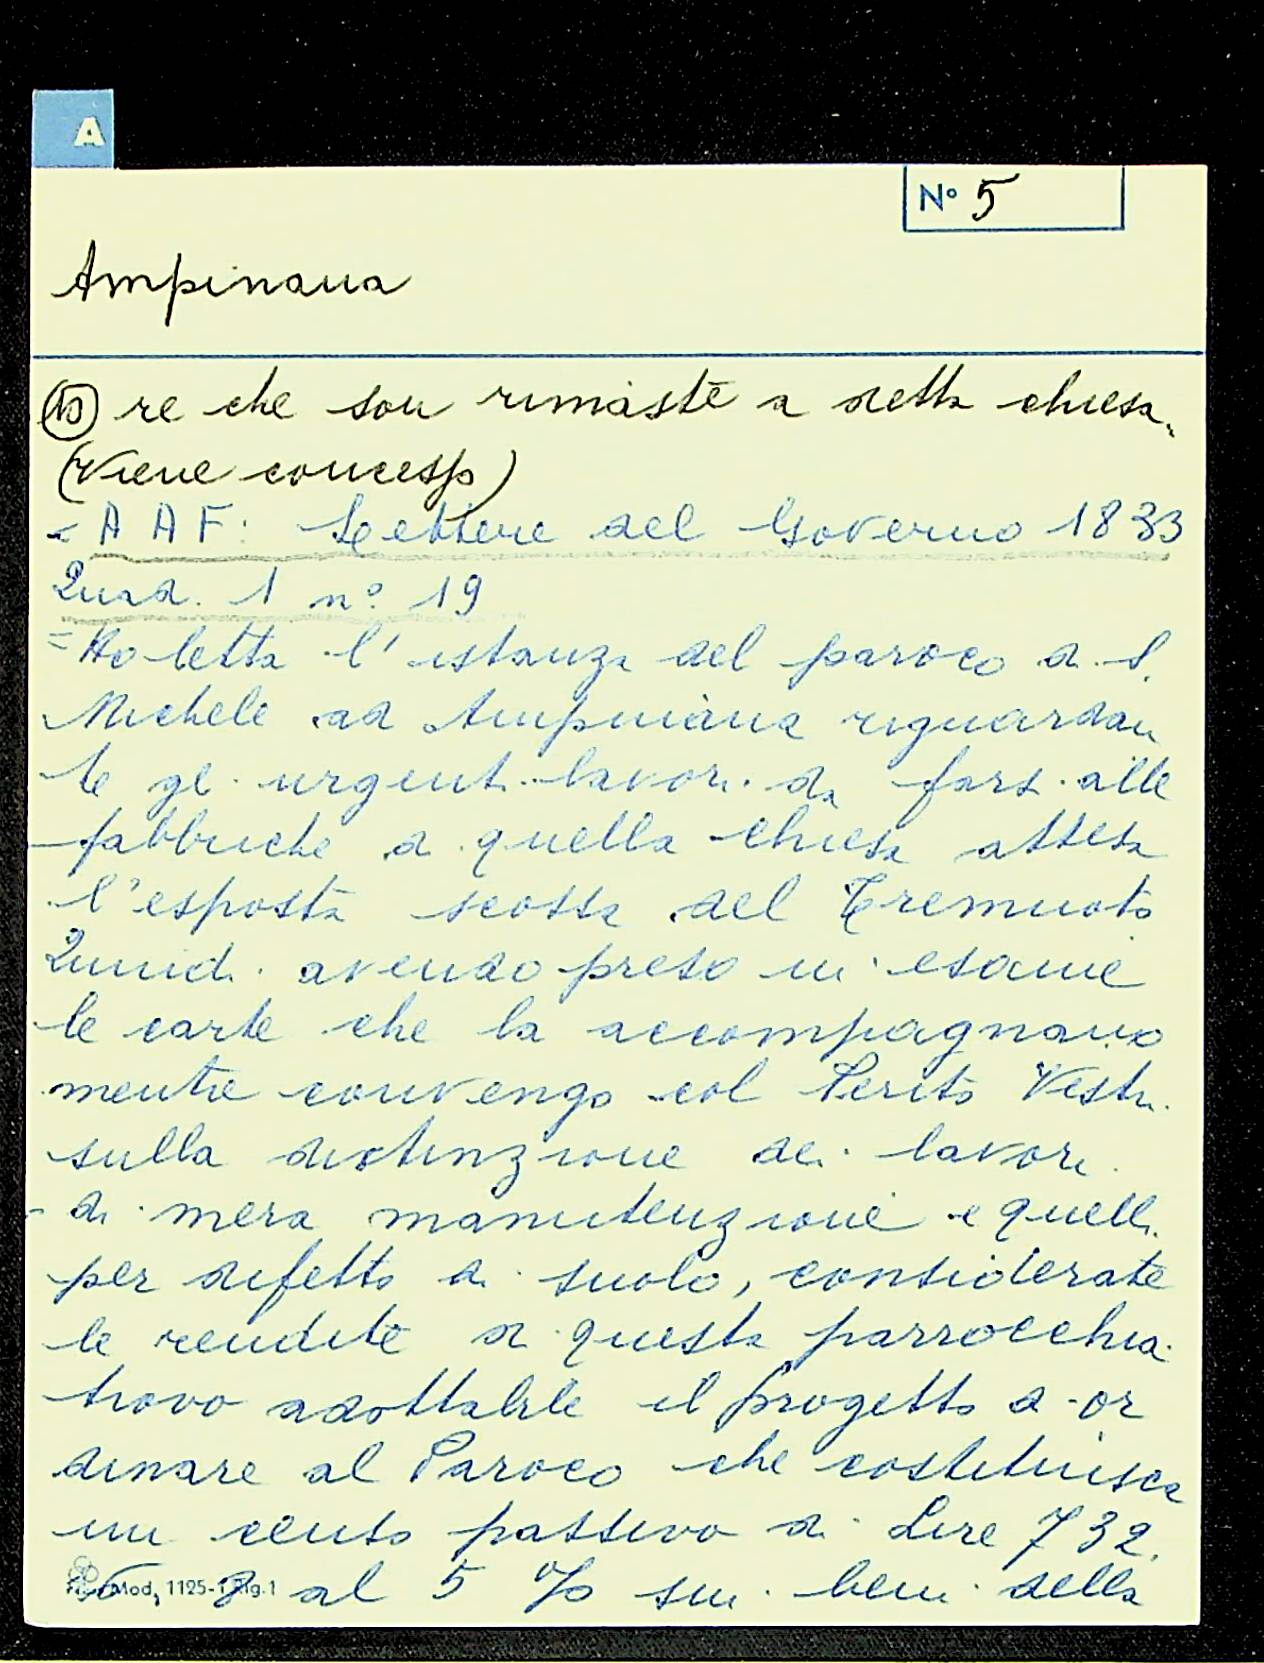 A
N° 5
Ampinana
re che son rimaste a detta chiesa.
(Viene concesso)
= A A F: Lettere del Governo 1833
Quad. 1 n° 19
= Ho letta l'istanza del paroco di S.
Michele ad Ampinana riguardan
te gli urgenti lavori da farsi alle
fabbriche di quella chiesa attesa
l'esposta scossa del Tremuoto
Quindi avendo preso in esame
le carte che la accompagnano
mentre convengo col Perito Vestri
sulla distinzione dei lavori
di mera manutenzione e quelli
per difetto di suolo, considerate
le rendite di questa parrocchia
trovo adottabile il progetto di or
dinare al Paroco che costituisca
un censo passivo di Lire 732.
Mod. 1125-1 Rig. 1
al 5 % sui beni della